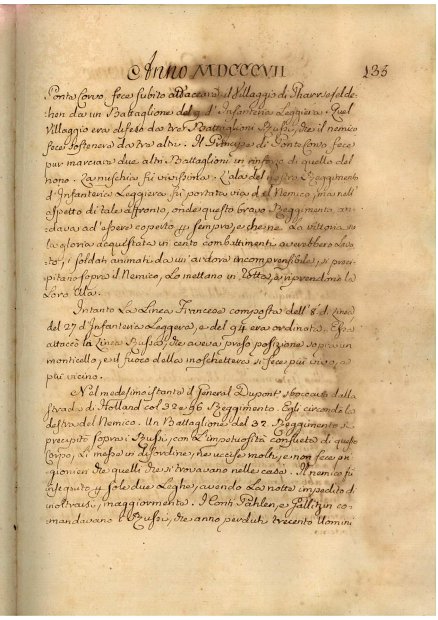 Anno MDCCCVII 135
Ponte Corvo fece subito attaccare il Villaggio di Pharresfelde-
hen da un Battaglione del 9. d'Infanteria Leggiera. Quel
Villaggio era difeso da tre Battaglioni Russi, che il nemico
fece sostenere da tre altri. Il Principe di Ponte Corvo fece
pur marciare due altri Battaglioni in rinforzo di quello del
nono. La mischia fù vivissima. L'ala del nostro Reggimento
d'Infanteria Leggiera fù portata via dal Nemico, ma nell'
aspetto di tale affronto, onde questo bravo Reggimento an-
dava ad essere coperto p sempre, e che nè la vittoria, nè
la gloria acquistata in cento combattimenti averebbero lava-
to, i soldati animati da un'ardore incomprensibile, si preci-
pitano sopra il Nemico, Lo mettano in rotta, e riprendino la
Loro Ala.
Intanto La Linea Francese composta dell'8. di Linea
del 27 d'Infanteria Leggera, e del 94 era ordinata. Essa
attaccò la Linea Russa, che aveva preso posizione sopra un
monticello, e il fuoco della moschetteria si fece più vivo, e
più vicino.
Nel medesimo istante il General Dupont sboccava dalla
strada di Holland col 32 e 96 Reggimento. Egli circondò la
destra del Nemico. Un Battaglione del 32. Reggimento si
precipitò sopra i Russi, con L'impetuosità consueta di questo
Corpo, Li messe in disordine, ne uccise molti, e non fece pri-
gionieri che quelli che si trovavano nelle case. Il nemico fù
inseguito p sole due Leghe, avendo La notte impedito di
inoltrarsi maggiormente. I Conti Pahlen, e Gallitzin co-
mandavano i Russi, che anno perduti trecento Uomini